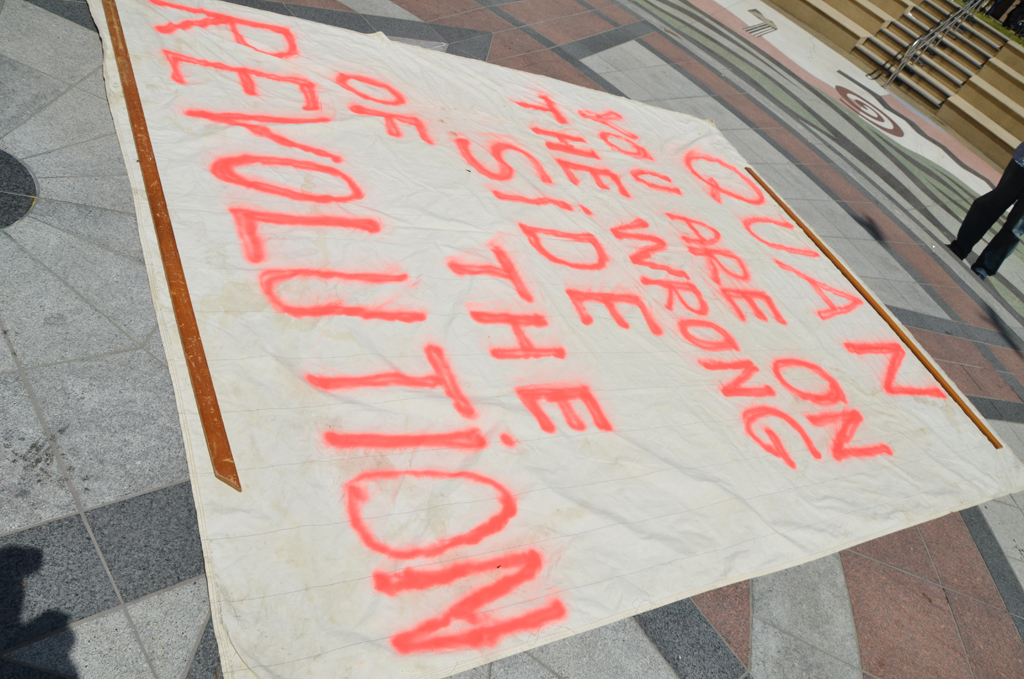 QUAN
YOU ARE ON
THE WRONG
SiDE
OF THE
REVOLUTiON